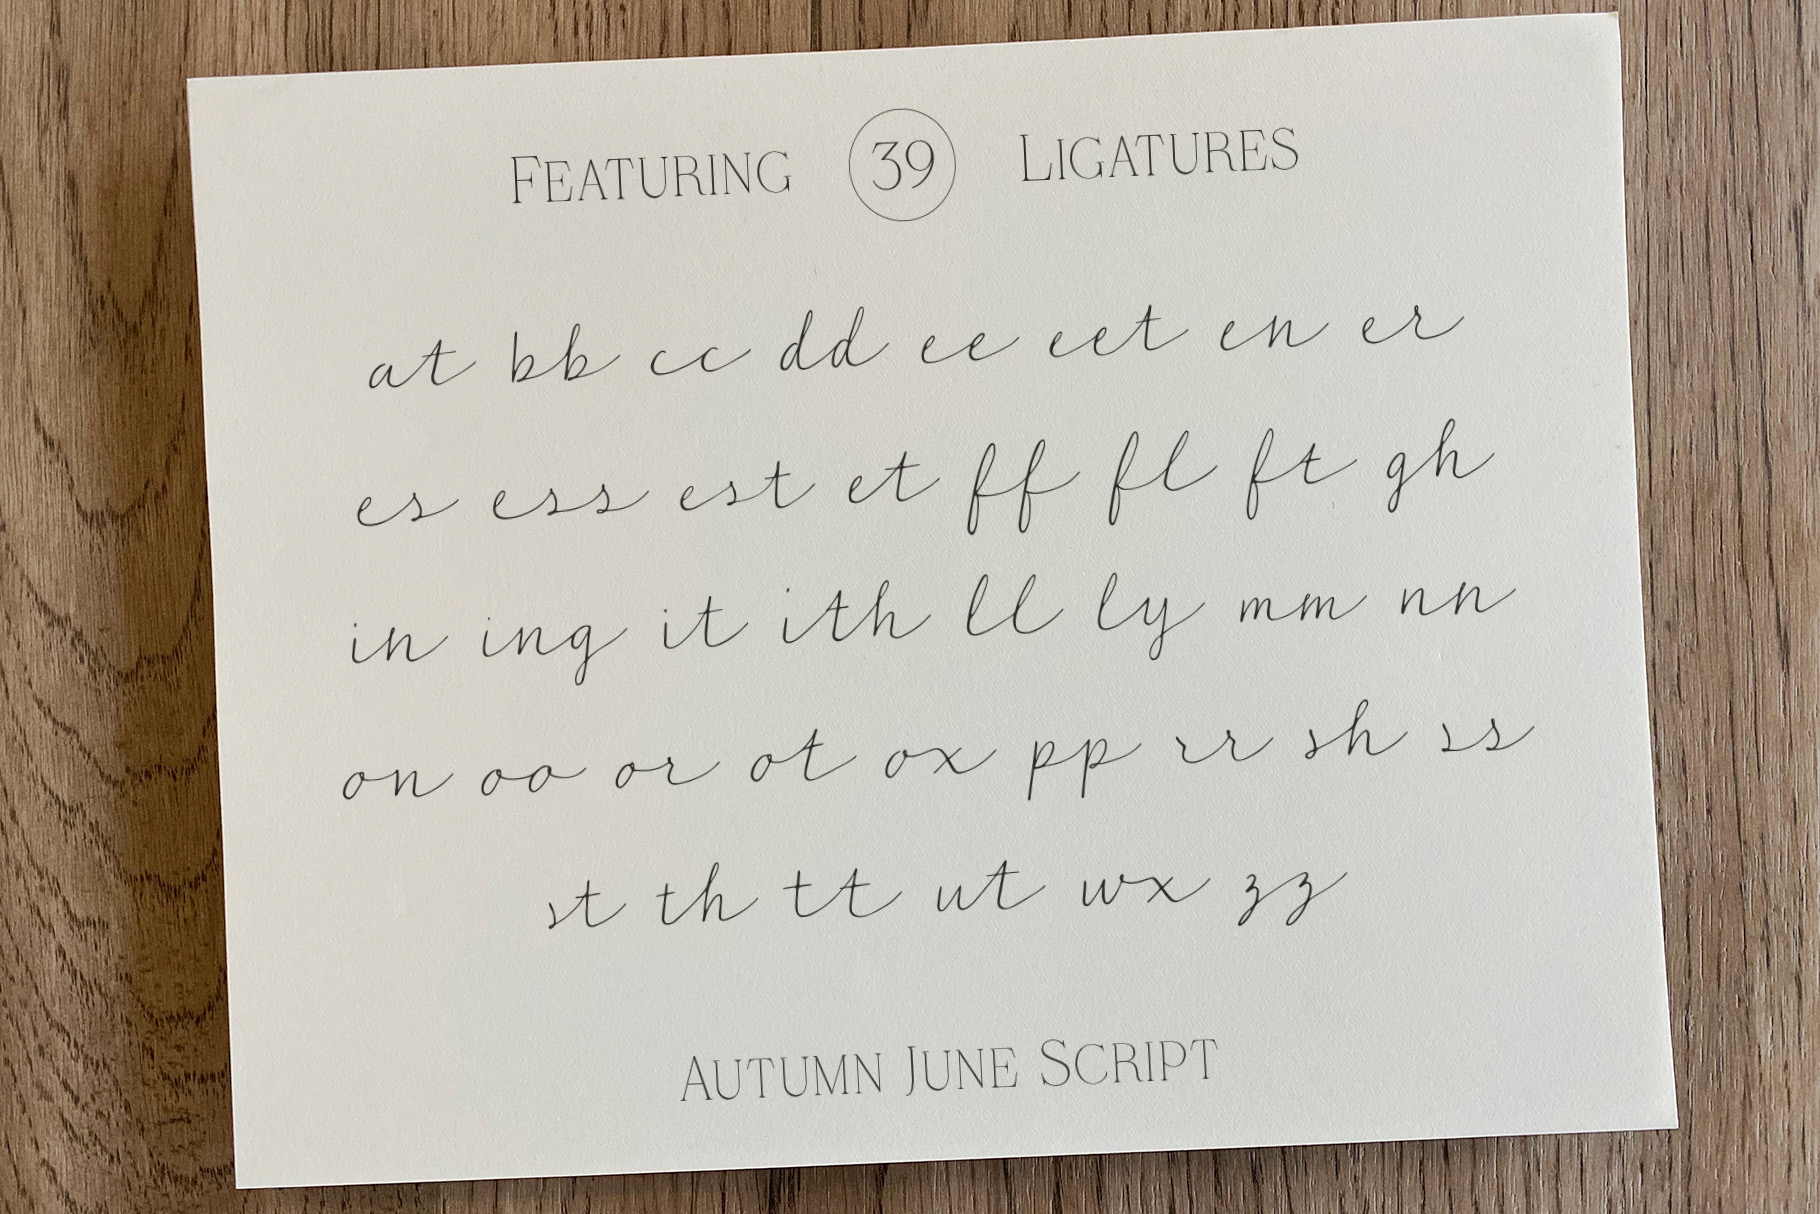 FEATURING 39 LIGATURES
at bb cc dd ee eet en er
es ess est et ff fl ft gh
in ing it ith ll ly mm nn
on oo or ot ox pp rr sh ss
st th tt ut wx zz
AUTUMN JUNE SCRIPT